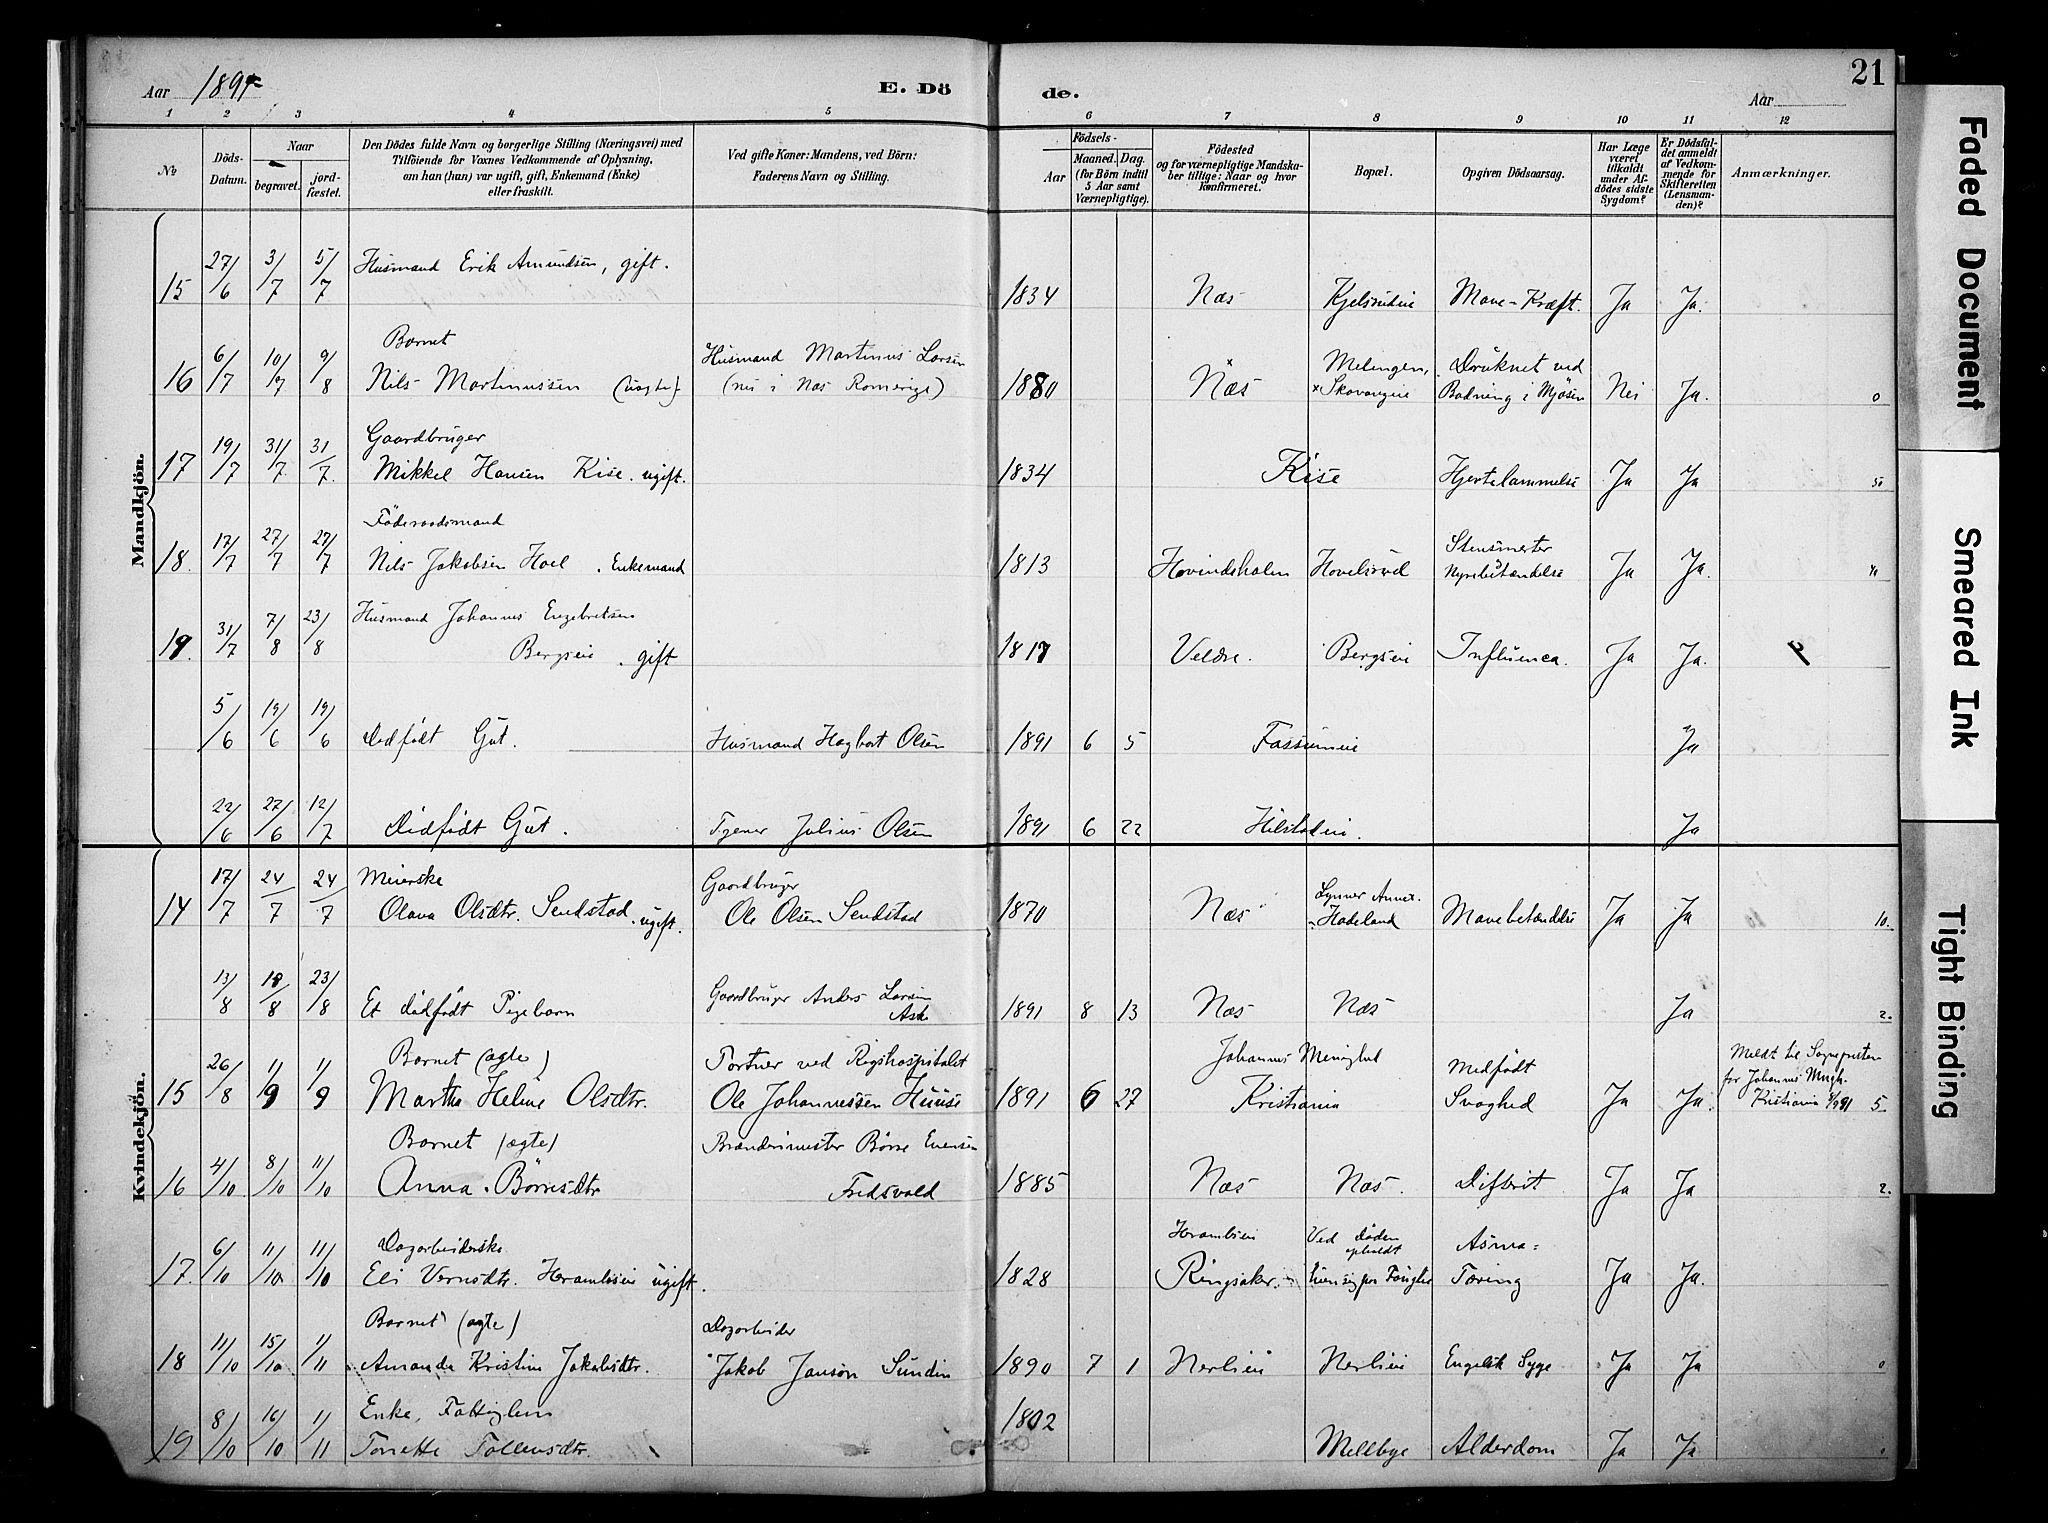 Aar 1891 E. Dö de. Aar 21
1 2 3 4 5 6 7 8 9 10 11 12
No
Döds-Datum.
Naar begravet. jordfæstet.
Den Dödes fulde Navn og borgerlige Stilling (Næringsvei) med Tilföiende for Voxnes Vedkommende af Oplysning, om han (hun) var ugift, gift, Enkemand (Enke) eller fraskilt.
Ved gifte Koner: Mandens, ved Börn: Faderens Navn og Stilling.
Födsels-
Aar Maaned. Dag. (for Börn indtil 5 Aar samt Værnepligtige).
Födested og for værnepligtige Mandskaber tillige: Naar og hvor Konfirmeret.
Bopæl.
Opgiven Dödsaarsag.
Har Læge været tilkaldt under Afdödes sidste Sygdom?
Er Dödsfaldet anmeldt af Vedkommende for Skifteretten (Lensmanden)?
Anmærkninger.
Mandkjön.
15 27/6 3/7 5/7 Husmand Erik Amundsen, gift. 1834 Næs Kjelsrudeie Mave-Kræft. Ja Ja.
16 6/7 10/7 9/8 Barnet
Nils Martinussen (uægte) Husmand Martinus Larsen
(nu i Næs Romerige) 1880 Næs Melingen,
Skavangeie Druknet ved
Badning i Mjösen Nei Ja. 0
17 19/7 31/7 31/7 Gaardbruger
Mikkel Hansen Kise. ugift. 1834 Kise Hjertelammelse Ja Ja 50
18. 17/7 27/7 27/7 Föderaadsmand
Nils Jakobsen Hoel. Enkemand 1813 Hovindsholm Hovelsrud Stensmerter
Nyrebetændelse Ja Ja.
19. 31/7 7/8 23/8 Husmand Johannes Engebretsen
Bergseie. gift 1817 Veldre. Bergseie Influenca. Ja Ja. 2
5/6 19/6 19/6 Dødfødt Gut. Husmand Hagbart Olsen 1891 6 5 Fossumeie Ja
22/6 27/6 12/7 Dødfødt Gut. Tjener Julius Olsen 1891 6 22 Hilstadeie. Ja
Kvindekjön.
14 17/7 24/7 24/7 Meierske
Olava Olsdtr. Sendstad. ugift. Gaardbruger
Ole Olsen Sendstad 1870 Næs Lynner Annex.
Hadeland Mavebetændelse Ja Ja 10.
13/8 18/8 23/8 Et dødfødt Pigebarn Gaardbruger Anders Larsen
Ask 1891 8 13 Næs Næs Ja 2.
15 26/8 1/9 1/9 Barnet (ægte)
Martha Heline Olsdtr. Portner ved Rigshospitalet
Ole Johannessen Huuse 1891 6 27 Johannes Menighed
Kristiania Medfødt
Svaghed Ja Ja. Meldt til Sognepresten
for Johannes Mngh.
Kristiania 5
16 4/10 8/10 11/10 Barnet (ægte)
Anna. Börresdtr Brænderimester Börre Evensen
Fredsvold 1885 Næs Næs. Difterit Ja Ja 2.
17. 6/10 11/10 11/10 Dagarbeiderske
Eli Vernsdtr. Hrambseie ugift. 1828 Hrambseie
Ringsaker. Ved døden
opholdt Asma=
Tæring Ja Ja.
18 11/10 15/10 1/11 Barnet (ægte)
Amanda Kristine Jakobsdtr. Dagarbeider
Jakob Janson Sundin 1890 7 1 Nerlieie Nerlieie Engelsk Syge Ja Ja 0
19 8/10 16/10 1/11 Enke, Fattiglem
Tonette Tollensdtr. 1802 Mellbye Alderdom Ja Ja 0
Faded Document
Smeared Ink
Tight Binding